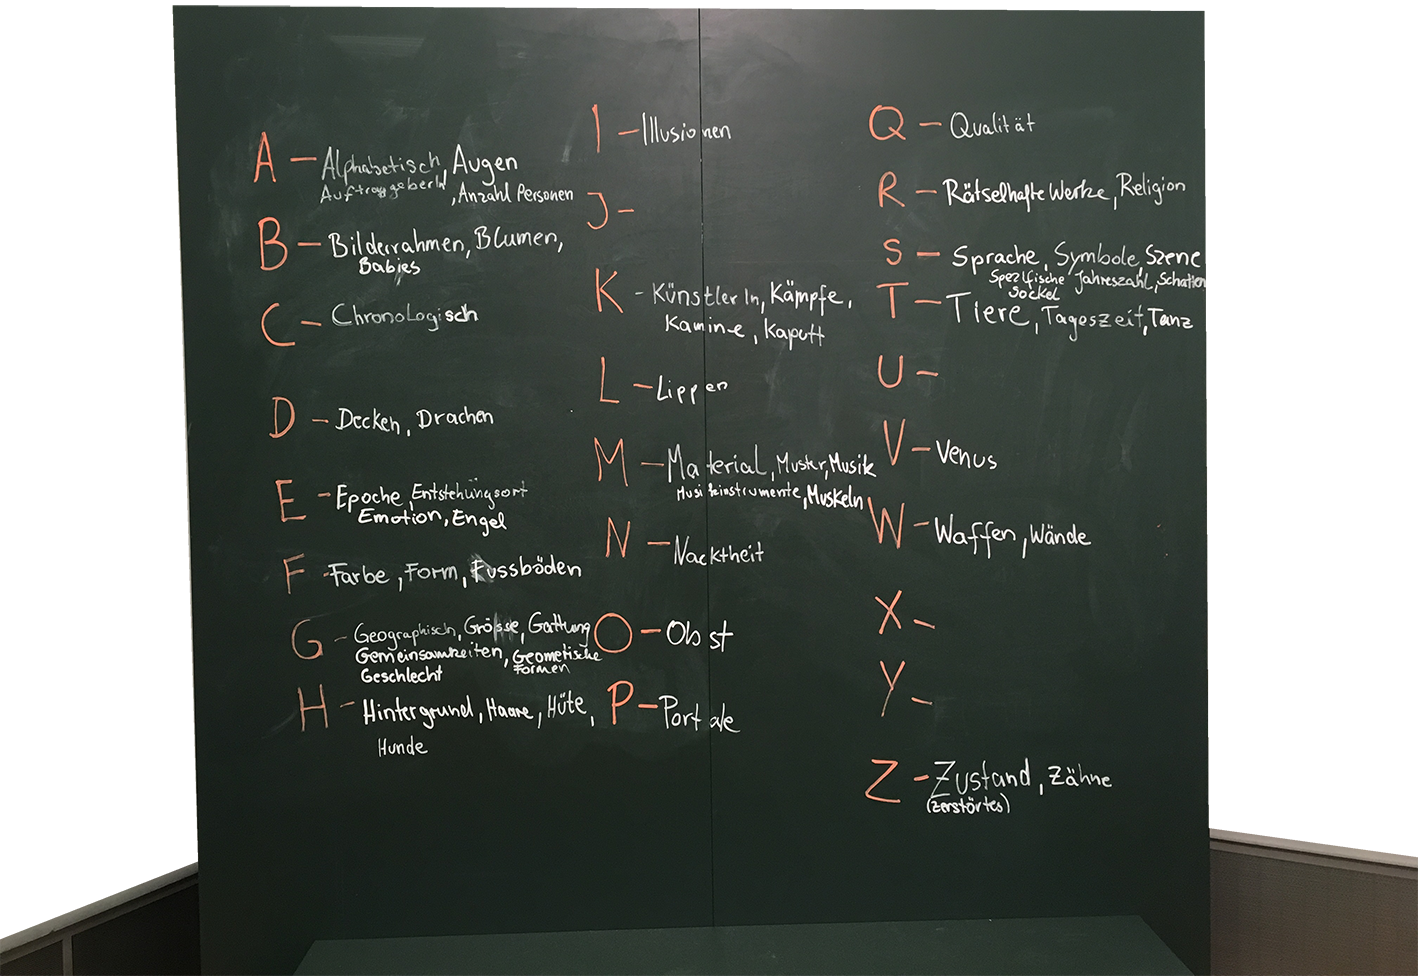 A – Alphabetisch, Augen
AuftraggeberIn, Anzahl Personen
B – Bilderrahmen, Blumen,
Babies
C – Chronologisch
D – Decken, Drachen
E – Epoche, Entstehungsort
Emotion, Engel
F – Farbe, Form, Fussböden
G – Geographisch, Grösse, Gattung
Gemeinsamkeiten, Geometische
Formen
Geschlecht
H – Hintergrund, Haare, Hüte,
Hunde
I – Illusionen
J –
K – KünstlerIn, Kämpfe,
Kamine, kaputt
L – Lippen
M – Material, Muster, Musik
Musikinstrumente, Muskeln
N – Nacktheit
O – Obst
P – Portale
Q – Qualität
R – Rätselhafte Werke, Religion
S – Sprache, Symbole, Szene
Spezifische Jahreszahl, Schatten
Sockel
T – Tiere, Tageszeit, Tanz
U –
V – Venus
W – Waffen, Wände
X –
Y –
Z – Zustand, Zähne
(zerstörtes)